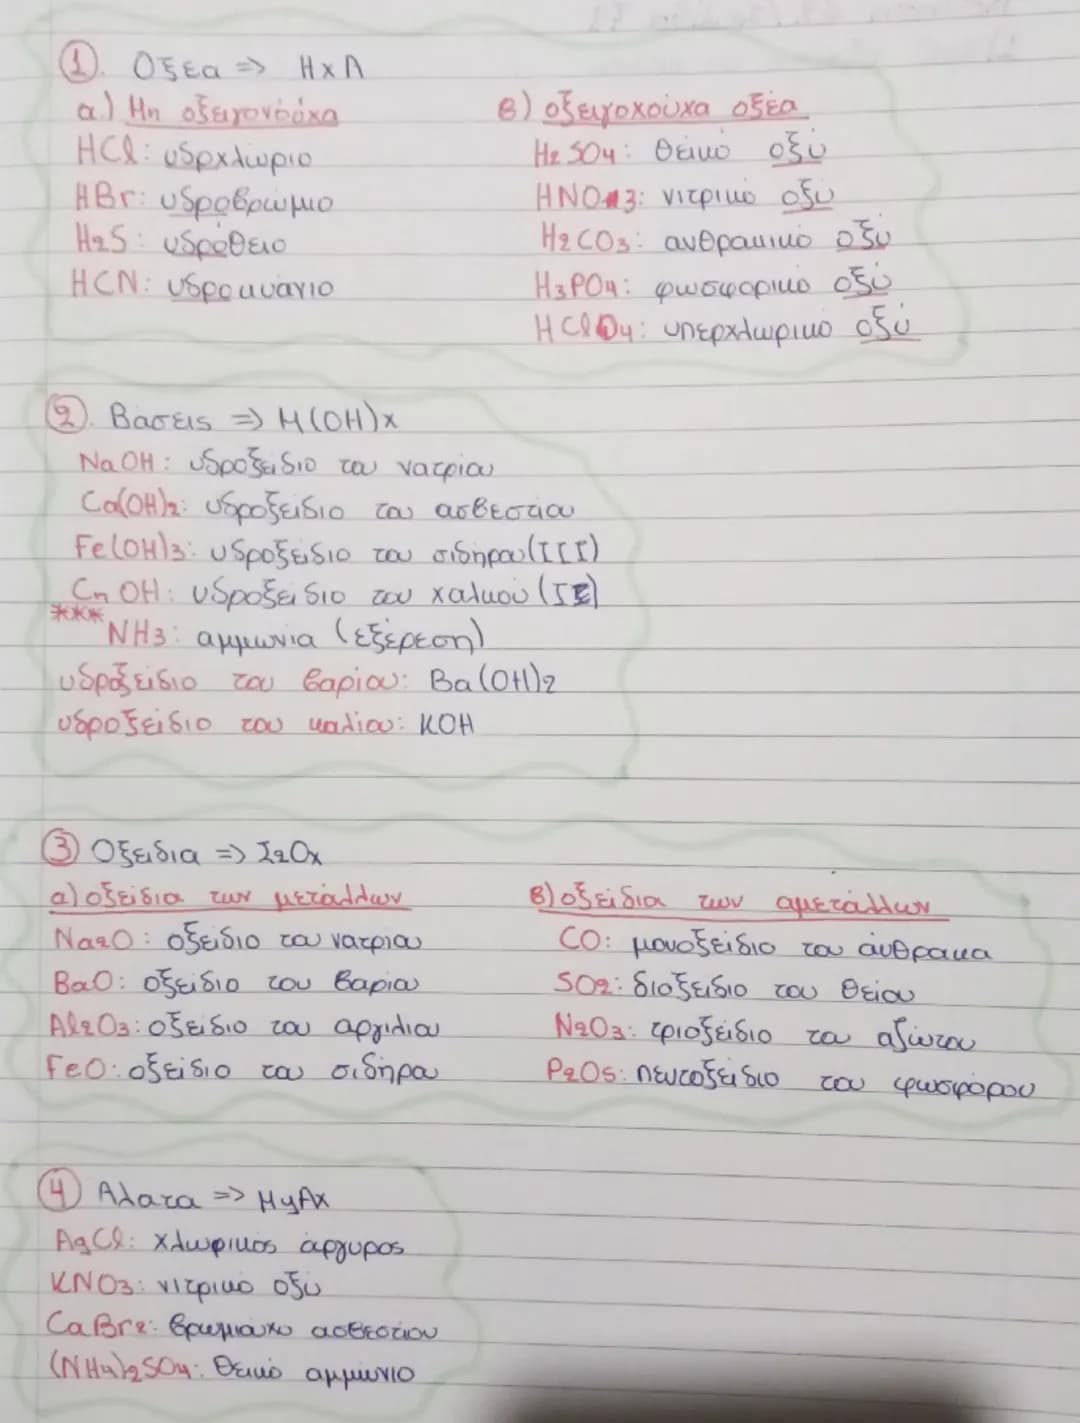 1. Οξέα => HxA
α.) Μη οξειγονούχα
HCl: υδρχλώριο
HBr: υδροβρώμιο
H2S: υδρόθειο
HCN: υδροκυάνιο
β) οξειγοχούχα οξέα
H2SO4: θειικό οξύ
HNO3: νιτρικό οξύ
H2CO3: ανθρακικό οξύ
H3PO4: φωσφορικό οξύ
HClO4: υπερχλωρικό οξύ
2. Βάσεις => M(OH)x
NaOH: υδροξείδιο του νατρίου
Ca(OH)2: υδροξείδιο του ασβεστίου
Fe(OH)3: υδροξείδιο του σιδήρου(III)
OH: υδροξείδιο του χαλκού
*** NH3: αμμωνία (εξέρεση)
υδροξείδιο του βαρίου: Ba(OH)2
υδροξείδιο του καλίου: KOH
3 Οξείδια => Σ2Οx
α) οξείδια των μετάλλων
Na2O: οξείδιο του νατρίου
BaO: οξείδιο του βαρίου
Al2O3: οξείδιο του αργιλίου
FeO: οξείδιο του σιδήρου
β) οξείδια των αμετάλλων
CO: μονοξείδιο του άνθρακα
SO2: διοξείδιο του θείου
N2O3: τριοξείδιο του αζώτου
P2O5: πεντοξείδιο του φωσφόρου
4 Άλατα => MyAx
AgCl: χλωρικός άργυρος
KNO3: νιτρικό οξύ
CaBr2: βρωμιούχο ασβεστίου
(NH4)2SO4: θειικό αμμώνιο